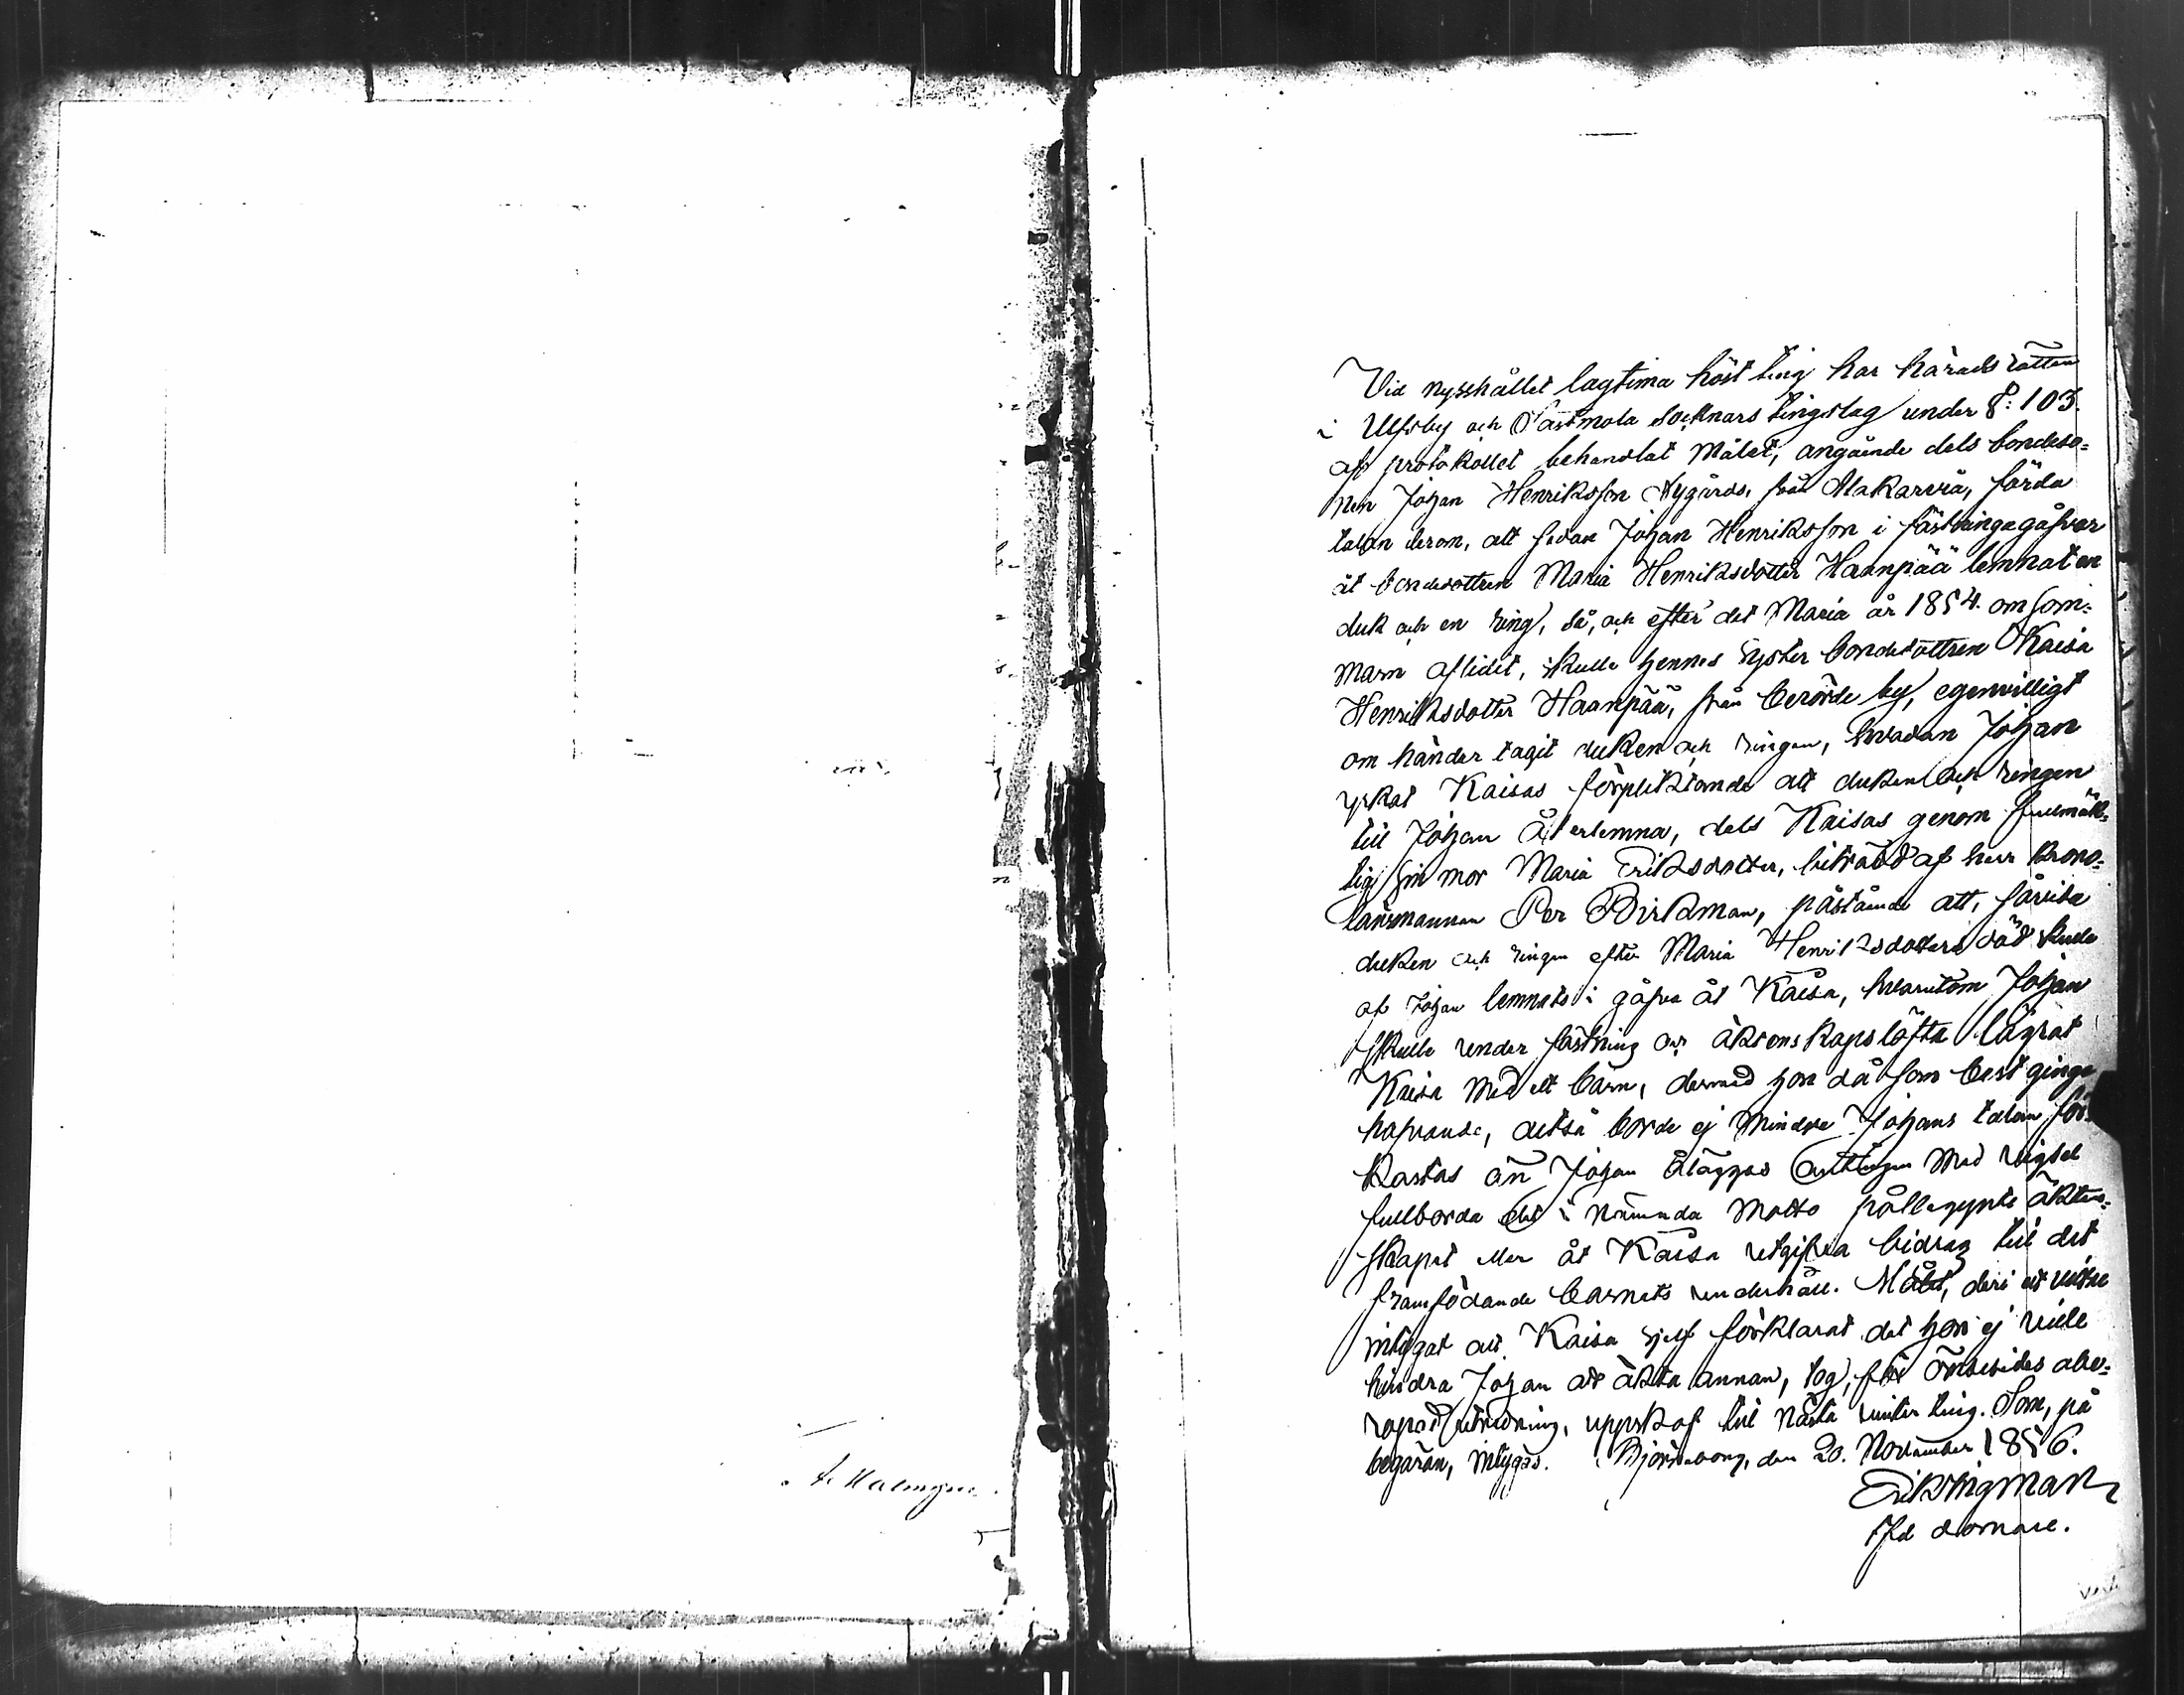 Vid nysshållet lagtima höst ting har härads rätten
i Ulfsby och Påstmola socknars tingslag under §: 103.
af protokollet behandlat målet, angående dels bondeso=
nen Johan Henriksson Nygårds, från Alakarvia, förda
talan derom, att sedan Johan Henriksson i fästningagåfvor
åt bondedottren Maria Henriksdotter Haanpää lemnat en
duk och en ring, så, och efter det Maria år 1854. om som=
marn aflidit, skulle hennes syster bondedottren Kaisa
Henriksdotter Haanpää, från berörde by, egenvilligt
om händer tagit duken och ringen, hvadan Johan
yrkat Kaisas förpliktande att duken och ringen
till Johan återlemna, dels Kaisas genom fullmäk=
tig sin mor Maria Eriksdotter, biträdd af herr krono=
länsmannen Per Birkman, påstående att, särvila
duken och ringen efter Maria Henriksdotters död skulle
af Johan lemnats i gåfva åt Kaisa, hvarutom Johan
skulle under fästning och äktenskapslöfte lägrat
Kaisa med ett barn, dermed hon då som bäst ginge
hafvande, altså borde ej mindre Johans talan för=
kastas än Johan åläggas antingen med vigsel
fullborda det i nämnda motto påbegynte äkten=
skapet eller åt Kaisa utgifva bidrag till det
framfödande barnets underhåll. Målet, deri ett vittne
intygat att Kaisa sjelf förklarat det hon ej ville
hindra Johan att äkta annan, tog, för ömsesides åbe=
ropad utredning, uppskof till nästa vinter ting. Som, på
begäran, intygas. Björneborg, den 20. November 1856.
Erik Wigman
Tfd domare.
vert
A. Malmgren